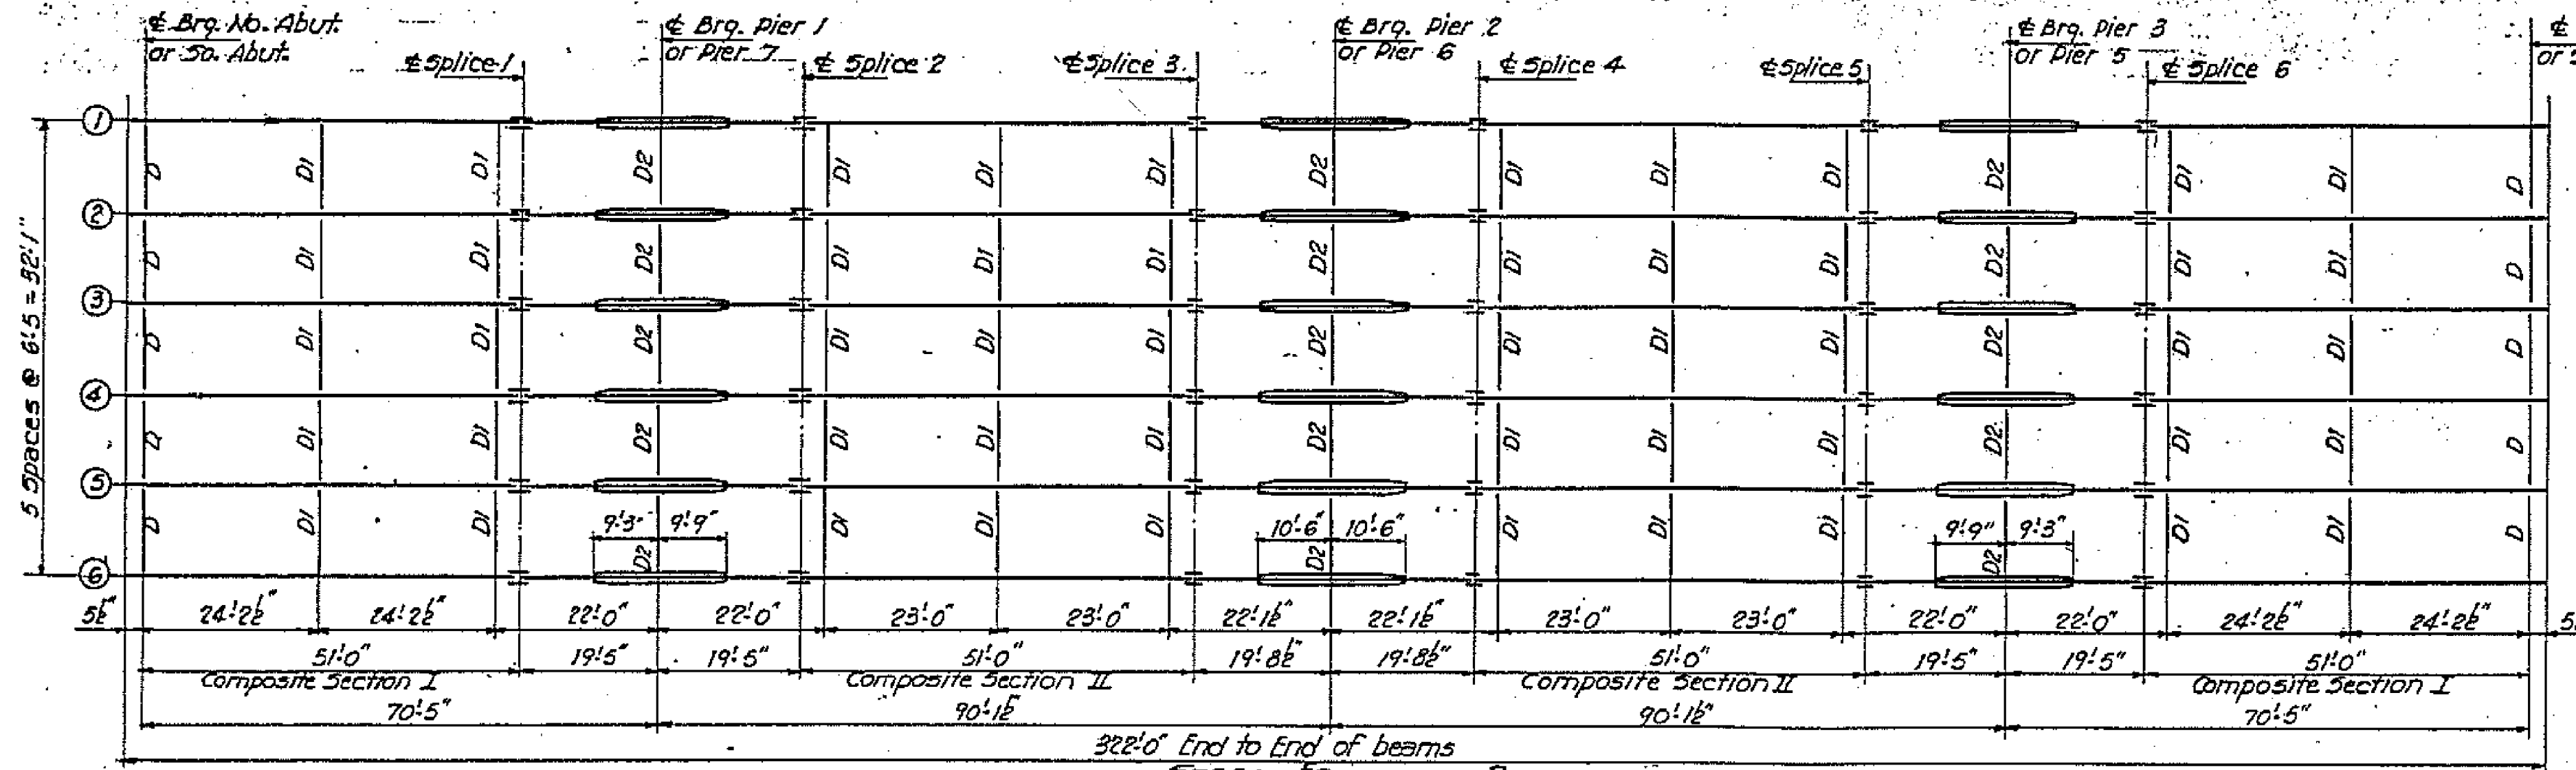 ℄ Brg. No. Abut.
or So. Abut.
℄ Splice 1
℄ Brg. Pier 1
or Pier 7
℄ Splice 2
℄ Splice 3
℄ Brg. Pier 2
or Pier 6
℄ Splice 4
℄ Splice 5
℄ Brg. Pier 3
or Pier 5
℄ Splice 6
℄
or
5 Spaces @ 6'-5 = 32'-1"
1
D D1 D1 D2 D1 D1 D1 D2 D1 D1 D1 D2 D1 D1 D
2
D D1 D1 D2 D1 D1 D1 D2 D1 D1 D1 D2 D1 D1 D
3
D D1 D1 D2 D1 D1 D1 D2 D1 D1 D1 D2 D1 D1 D
4
D D1 D1 D2 D1 D1 D1 D2 D1 D1 D1 D2 D1 D1 D
5
9'-3" 9'-9" 10'-6" 10'-6" 9'-9" 9'-3"
D D1 D1 D2 D1 D1 D1 D2 D1 D1 D1 D2 D1 D1 D
6
5½" 24'-2½" 24'-2½" 22'-0" 22'-0" 23'-0" 23'-0" 22'-1½" 22'-1½" 23'-0" 23'-0" 22'-0" 22'-0" 24'-2½" 24'-2½"
51'-0" 19'-5" 19'-5" 51'-0" 19'-8½" 19'-8½" 51'-0" 19'-5" 19'-5" 51'-0"
Composite Section I Composite Section II Composite Section II Composite Section I
70'-5" 90'-1½" 90'-1½" 70'-5"
322'-0" End to End of beams